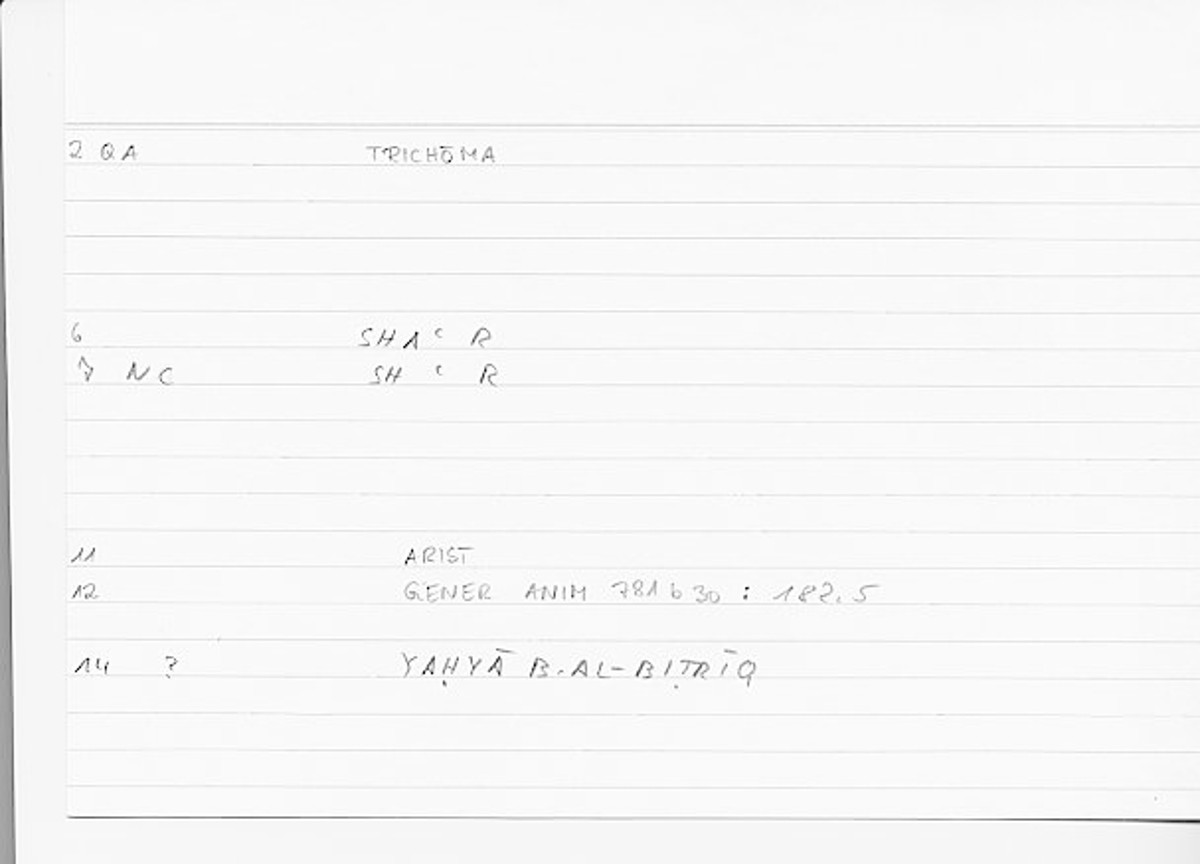 2 QA TRICHŌMA
6 SH1ʿ R
7 NC SH ʿ R
11 ARIST
12 GENER ANIM 781 b 30 : 182.5
14 ? YAḤYĀ B.AL-BIṬRĪQ